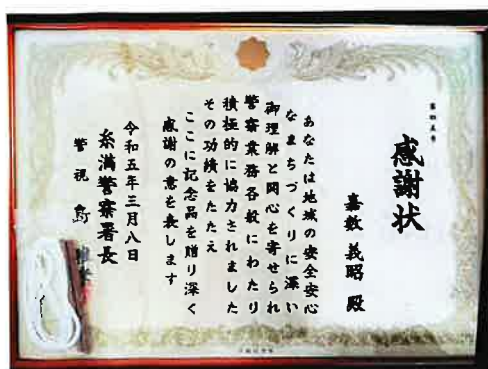 第四五号
感謝状
嘉数 義昭 殿
あなたは地域の安全安心
なまちづくりに深い
御理解と関心を寄せられ
警察業務各般にわたり
積極的に協力されました
その功績をたたえ
ここに記念品を贈り深く
感謝の意を表します
令和五年三月八日
糸満警察署長
警視 島